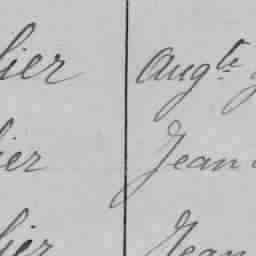 lier Augte
ier Jean
lier Jean